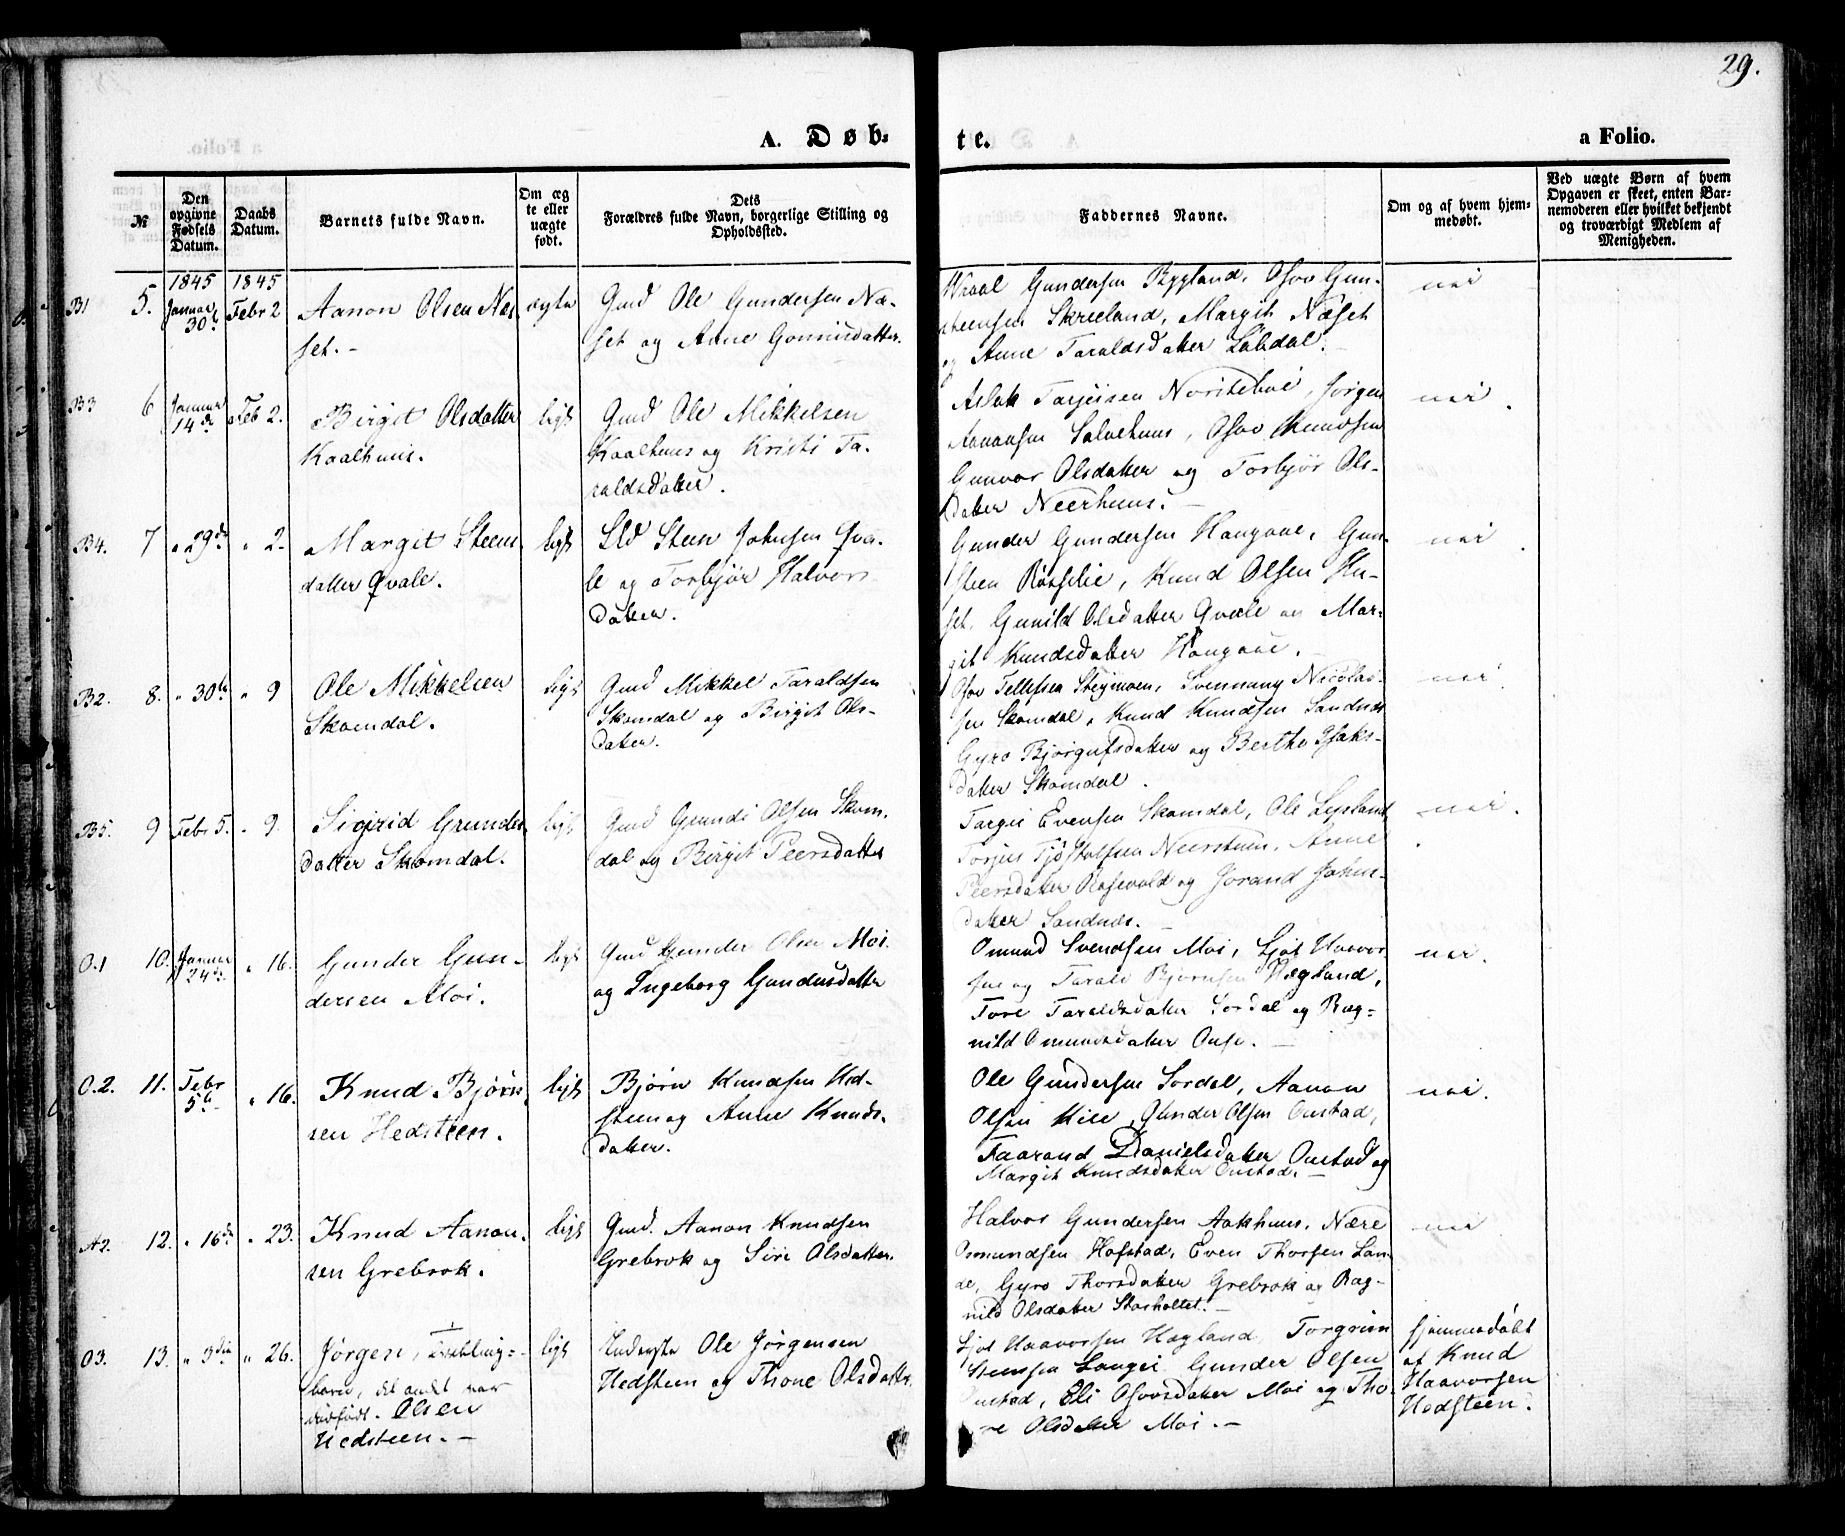 29.
A. Døb-
te.
a Folio.
№
Den opgivne Fødsels Datum.
Daabs Datum.
Barnets fulde Navn.
Om ægte eller uægte født.
Dets Forældres fulde Navn, borgerlige Stilling og Opholdssted.
Faddernes Navne.
Om og af hvem hjemmedøbt.
Ved uægte Børn af hvem Opgaven er skeet, enten Barnemoderen eller hvilket bekjendt og troværdigt Medlem af Menigheden.
1845 1845
B1 5. Januar 30te Febr 2 Aanon Olsen Næs- ægte Gmd Ole Gundersen Næ-
set.- set og Anne Gonnusdatter.
Gundersen Bygland, Osov Gun-
steensen Skreeland, Margit Næset
og Anne Taraldsdatter Løbdal.-
nei
B3 6 Januar 14de Feb 2. Birgit Olsdatter ligt Gmd Ole Mikkelsen
Kaalhuus. Kaalhuus og Kristi Ta-
raldsdatter.
Aslak Tarjeisen Norsteboe, Jørgen
Aanonsen Salvehuus, Osov Knudsen
Gunvor Olsdatter og Torbjør Ols-
datter Neerhuus.-
nei.
B4. 7 " 29de " 2. Margit Steens ligt Sld Steen Johnsen Qva-
datter Qvale. le og Torbjør Halvors-
datter.
Gunder Gundersen Haugaae, Gun-
steen Røsselie, Knud Olsen Hu-
set, Gunild Olsdatter Qvale og Mar-
git Knudsdatter Haugaae.
nei.
B2. 8. " 30te " 9 Ole Mikkelsen ligt Gmd Mikkel Taraldsen
Skomdal. Skomdal og Birgit Ols-
datter.
Osov Tellefsen Stegmoen, Svennung Nicolai-
sen Skomdal, Knud Knudsen Sandnes
Gyro Bjørgufsdatter og Berthe Isaks-
datter Skomdal.
nei.
B5. 9 Febr 5. " 9. Sigrid Grundes ligt Gmd Grundi Olsen Skom-
datter Skomdal. dal og Birgit Peersdatter
Targie Evensen Skomdal, Ole Lysland
Torjus Tjøstolfsen Neerstuen, Anne
Peersdatter Rosevold og Jorand Johns-
datter Sandnes.-
nei.
O.1 10. Januar 24de " 16. Gunder Gun- ligt Gmd Gunder Olsen Moi
dersen Moi. og Ingeborg Gundersdatter
Omund Svendsen Moi, Ljot Haavor-
sen og Tarald Bjørnsen Hægland,
Tore Taraldsdatter Sordal og Rag-
nild Omundsdatter
nei.
O.2. 11. Febr 5te " 16. Knud Bjørn- ligt Bjørn Knudsen Hed-
sen Hedsteen. steen og Anne Knuds-
datter.
Ole Gundersen Sordal, Aanon
Olsen Kile, Gunder Olsen Oustad,
Taarand Danielsdatter Oustad og
Margit Knudsdatter Oustad.-
nei.
A2. 12. " 16de " 23. Knud Aanon- ligt Gmd. Aanon Knudsen
sen Grebrok. Grebrok og Siri Olsdatter.
Halvor Gundersen Aakhuus, Nære
Osmundsen Hofstad, Even Thorsen Lan-
de, Gyro Thorsdatter Grebrok og Rag-
nild Olsdatter Storholtet.-
nei
O3. 13. " 3die " 26. Jørgen, Tvilling- ligt Inderste Ole Jørgensen
barn, det andet var Hedsteen og Thone Olsdatter
dødfødt. Olsen
Hedsteen.-
Ljot Haavorsen Hægland, Torgrim
Steensen Langei Gunder Olsen
Oustad, Eli Osovsdatter Moi og Tho-
re Olsdatter Moi.-
hjemmedøbt
af Knud
Haavorsen
Hedsteen.